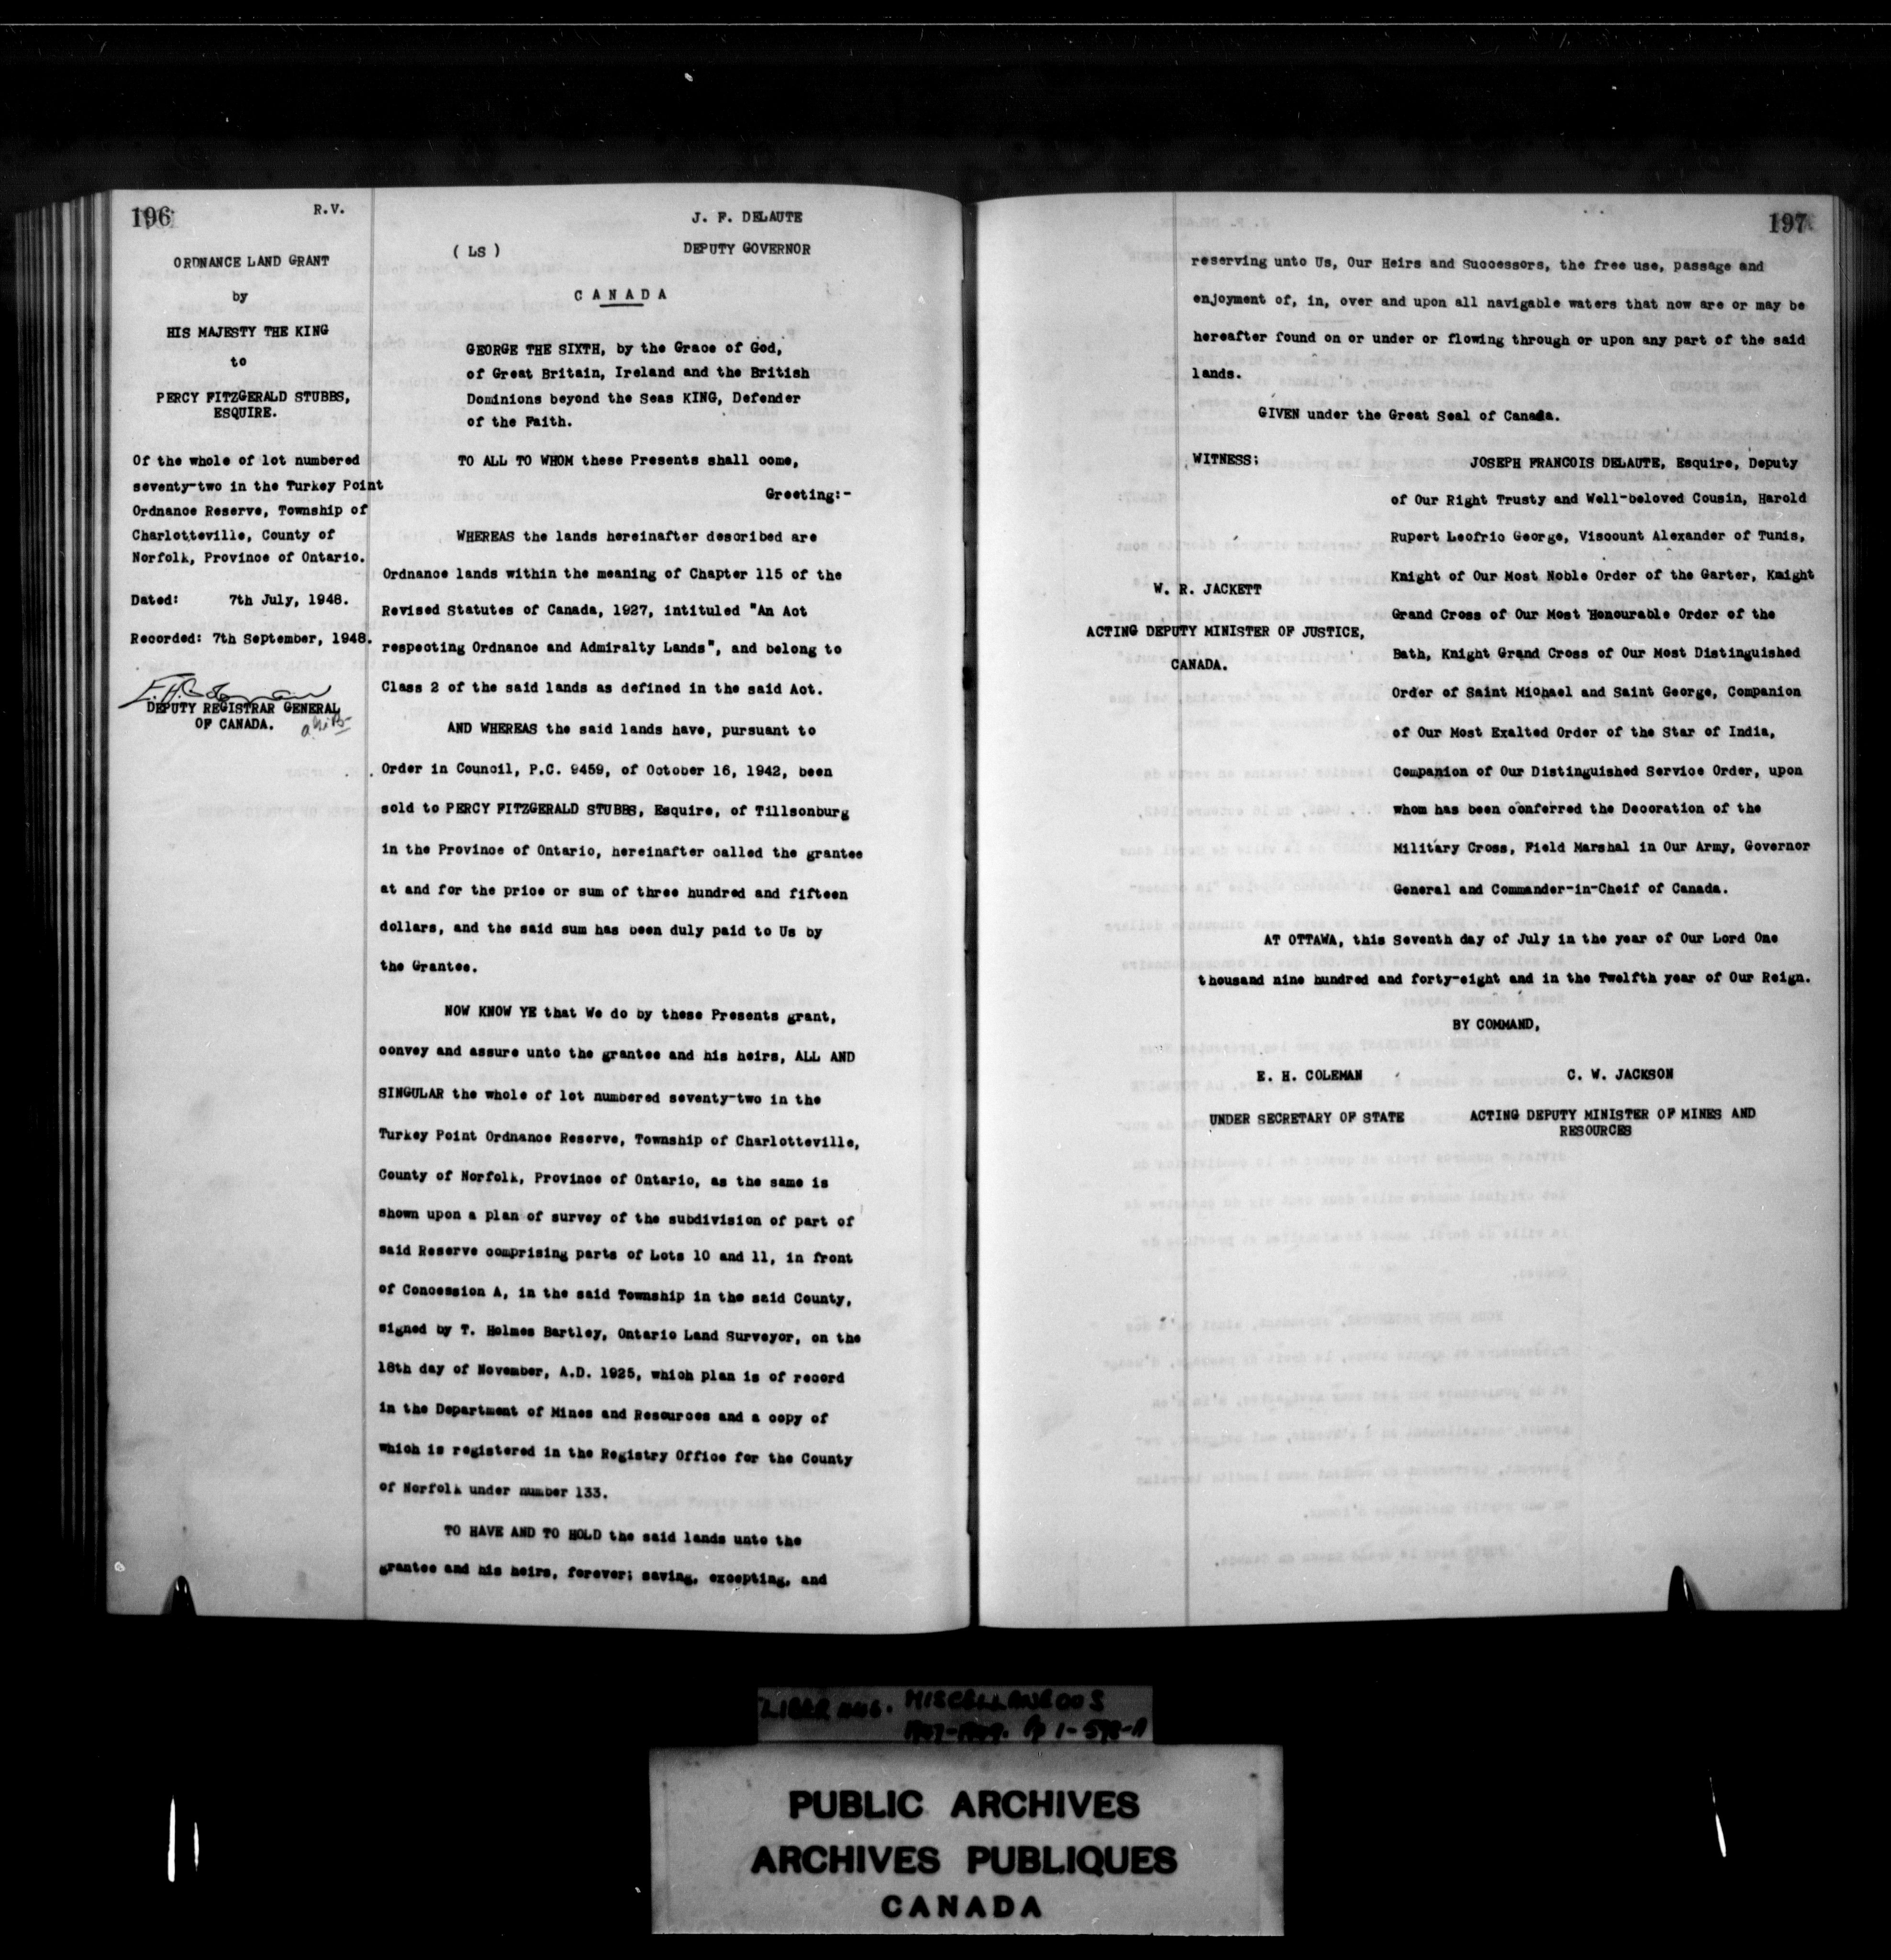 196
R.V.
ORDNANCE LAND GRANT
by
HIS MAJESTY THE KING
to
PERCY FITZGERALD STUBBS,
ESQUIRE.
Of the whole of lot numbered
seventy-two in the Turkey Point
Ordnance Reserve, Township of
Charlotteville, County of
Norfolk, Province of Ontario.
Dated: 7th July, 1948.
Recorded: 7th September, 1948.
DEPUTY REGISTRAR GENERAL
OF CANADA.
J. F. DELAUTE
( LS ) DEPUTY GOVERNOR
C A N A D A
GEORGE THE SIXTH, by the Grace of God,
of Great Britain, Ireland and the British
Dominions beyond the Seas KING, Defender
of the Faith.
TO ALL TO WHOM these Presents shall come,
Greeting:-
WHEREAS the lands hereinafter described are
Ordnance lands within the meaning of Chapter 115 of the
Revised Statutes of Canada, 1927, intituled "An Act
respecting Ordnance and Admiralty Lands", and belong to
Class 2 of the said lands as defined in the said Act.
AND WHEREAS the said lands have, pursuant to
Order in Council, P.C. 9459, of October 16, 1942, been
sold to PERCY FITZGERALD STUBBS, Esquire, of Tillsonburg
in the Province of Ontario, hereinafter called the grantee
at and for the price or sum of three hundred and fifteen
dollars, and the said sum has been duly paid to Us by
the Grantee.
NOW KNOW YE that We do by these Presents grant,
convey and assure unto the grantee and his heirs, ALL AND
SINGULAR the whole of lot numbered seventy-two in the
Turkey Point Ordnance Reserve, Township of Charlotteville,
County of Norfolk, Province of Ontario, as the same is
shown upon a plan of survey of the subdivision of part of
said Reserve comprising parts of Lots 10 and 11, in front
of Concession A, in the said Township in the said County,
signed by T. Holmes Bartley, Ontario Land Surveyor, on the
18th day of November, A.D. 1925, which plan is of record
in the Department of Mines and Resources and a copy of
which is registered in the Registry Office for the County
of Norfolk under number 133.
TO HAVE AND TO HOLD the said lands unto the
grantee and his heirs, forever; saving, excepting, and
197
reserving unto Us, Our Heirs and Successors, the free use, passage and
enjoyment of, in, over and upon all navigable waters that now are or may be
hereafter found on or under or flowing through or upon any part of the said
lands.
GIVEN under the Great Seal of Canada.
WITNESS; JOSEPH FRANCOIS DELAUTE, Esquire, Deputy
of Our Right Trusty and Well-beloved Cousin, Harold
Rupert Leofric George, Viscount Alexander of Tunis,
Knight of Our Most Noble Order of the Garter, Knight
Grand Cross of Our Most Honourable Order of the
Bath, Knight Grand Cross of Our Most Distinguished
Order of Saint Michael and Saint George, Companion
of Our Most Exalted Order of the Star of India,
Companion of Our Distinguished Service Order, upon
whom has been conferred the Decoration of the
Military Cross, Field Marshal in Our Army, Governor
General and Commander-in-Cheif of Canada.
W. R. JACKETT
ACTING DEPUTY MINISTER OF JUSTICE,
CANADA.
AT OTTAWA, this Seventh day of July in the year of Our Lord One
thousand nine hundred and forty-eight and in the Twelfth year of Our Reign.
BY COMMAND,
E. H. COLEMAN C. W. JACKSON
UNDER SECRETARY OF STATE ACTING DEPUTY MINISTER OF MINES AND
RESOURCES
MISCELLANEOUS
PUBLIC ARCHIVES
ARCHIVES PUBLIQUES
CANADA